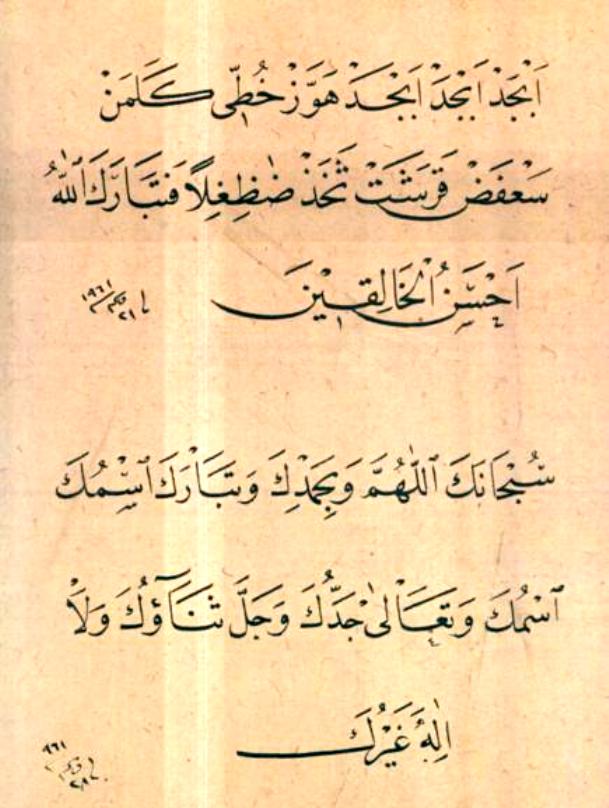 اَبْجَدْ اَبْجَدَ اَبْجَدَ هَوَّزْ حُطِّى كَلَمَنْ
سَعْفَصْ قَرَشَتْ ثَخَذْ ضَظِغِلًا فَتَبَارَكَ اللّٰهُ
اَحْسَنُ الْخَالِقِينَ
١٩٦١
سُبْحَانَكَ اللّٰهُمَّ وَبِحَمْدِكَ وَتَبَارَكَ اسْمُكَ
اسْمُكَ وَتَعَالٰى جَدُّكَ وَجَلَّ ثَنَاۤؤُكَ وَلَاۤ
اِلٰهَ غَيْرُكَ
٩٦١